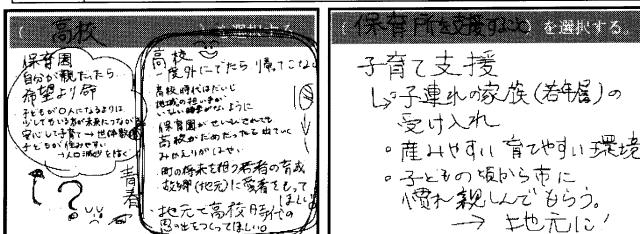 （ 高校 ）を選択する
保育園
自分が親だったら
希望より命
子どもが〇人になるよりは
少しでもいる方が未来につながる
安心して子育て→世代数
子どもが住みやすい
→人口減少を防ぐ
?
青春
高校
一度外にでたら帰ってこない
高校時代はだいじ
地域の担い手が
いない ように
保育園が
高校がだめだったら出ていく
町の将来を担う若者の育成
故郷(地元)に愛着をもって
ほしい
・地元で高校時代の
思い出をつくってほしい。
（保育所を支援すること）を選択する。
子育て支援
↳子連れの家族(若年層)の
受け入れ
・産みやすい育てやすい環境
・子どもの頃から市に
慣れ親しんでもらう。
→地元に!